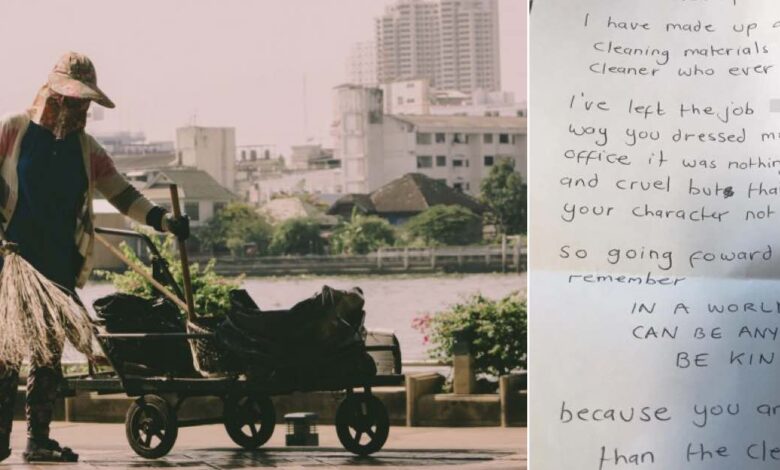 I have made up a
cleaning materials
cleaner who ever
I've left the job
way you dressed m
office it was nothin
and cruel but tha
your character not
so going foward
remember
IN A WORL
CAN BE ANY
BE KIN
because you ar
than the cle